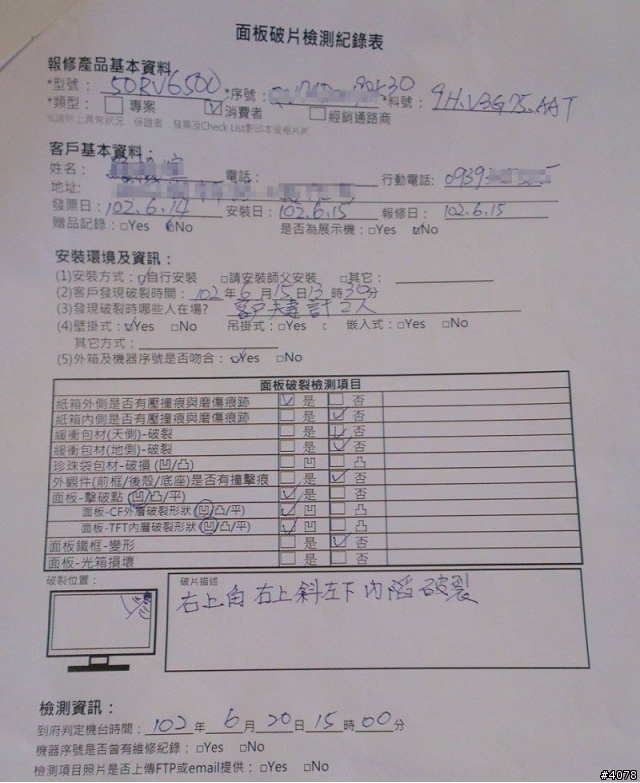 面板破片檢測紀錄表
報修產品基本資料
*型號： 50RV6500 *序號： *料號： 9H.V3G75.AAT
*類型： □ 專案 ☑ 消費者 □ 經銷通路商
客戶基本資料：
姓名： 電話： 行動電話: 0939
地址:
發票日：102.6.14 安裝日：102.6.15 報修日：102.6.15
贈品記錄：□Yes ☑No 是否為展示機：□Yes ☑No
安裝環境及資訊：
(1)安裝方式：☑自行安裝 □請安裝師父安裝 □其它：
(2)客戶發現破裂時間：102年6月15日13時30分
(3)發現破裂時哪些人在場? 客戶夫妻 計2人
(4)壁掛式：☑Yes □No 吊掛式：□Yes 嵌入式：□Yes □No
其它方式：
(5)外箱及機器序號是否吻合：☑Yes □No
面板破裂檢測項目
紙箱外側是否有壓撞痕與磨傷痕跡 ☑ 是 □ 否
紙箱內側是否有壓撞痕與磨傷痕跡 □ 是 ☑ 否
緩衝包材(天側)-破裂 □ 是 ☑ 否
緩衝包材(地側)-破裂 □ 是 ☑ 否
珍珠袋包材-破損 (凹/凸) □ 凹 □ 凸
外觀件(前框/後殼/底座)是否有撞擊痕 □ 是 ☑ 否
面板-擊破點 (凹/凸/平) ☑ 是 □ 否
面板-CF外層破裂形狀 (凹/凸/平) ☑ 凹 □ 凸
面板-TFT內層破裂形狀 (凹/凸/平) ☑ 凹 □ 凸
面板鐵框-變形 □ 是 ☑ 否
面板-光箱損壞 □ 是 □ 否
破裂位置： 破片描述
右上角 右上斜左下 內陷 破裂
檢測資訊：
到府判定機台時間：102年6月20日15時00分
機器序號是否曾有維修紀錄：□Yes □No
檢測項目照片是否上傳FTP或email提供：□Yes □No
#4078